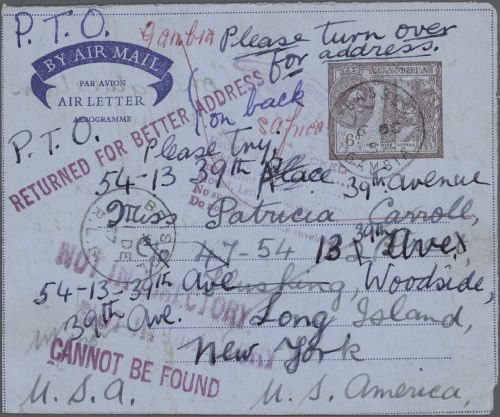 P.T.O.
Gambia
Please turn over
for address.
(on back
BY AIR MAIL
PAR AVION
AIR LETTER
AEROGRAMME
GAMBIA
6
GAMBIA
S. Africa
P.T.O.
RETURNED FOR BETTER ADDRESS
Please Try.
54-13 39th Place 39th Avenue
Miss Patricia Carroll,
47-54 13 39th Ave.
54-13-39th Ave Flushing, Woodside,
39th Ave. Long Island,
NOT IN DIRECTORY
New York
CANNOT BE FOUND
U.S.A. U.S. America,